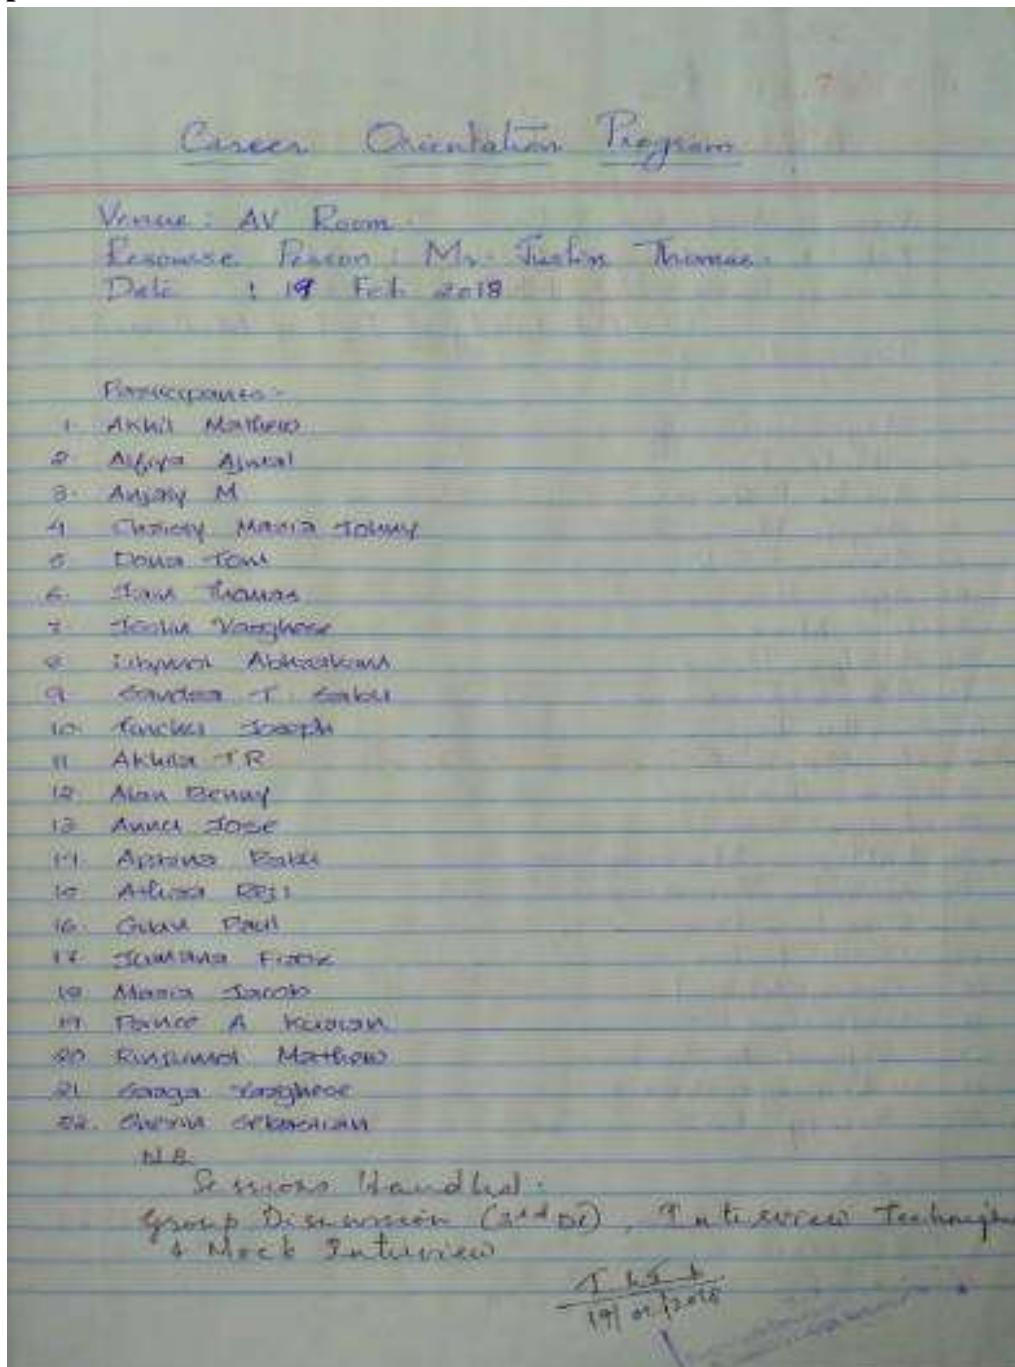 Career Orientation Program
Venue : AV Room.
Resourse Person : Mr. Justin Thomas.
Date : 19 Feb 2018
Participants :-
1. Akhil Mathew
2. Alfiya Ajmal
3. Anjaly M
4. Christy Maria Johny
5. Dona Tom
6. Thomas
7. Varghese
8. Libymol Abhraham
9. Sandra T. Sabu
10. Joseph
11. Akhila T R
12. Alan Benny
13. Annu Jose
14. Babu
15. Athira Reji
16. Paul
17. Jumana Firoz
18. Maria Jacob
19. Prince A Kurian
20. Rinjumol Mathew
21. Varghese
22. Sebastian
N.B
Sessions Handled.
Group Discussion (2nd DC), Interview
& Mock Interview